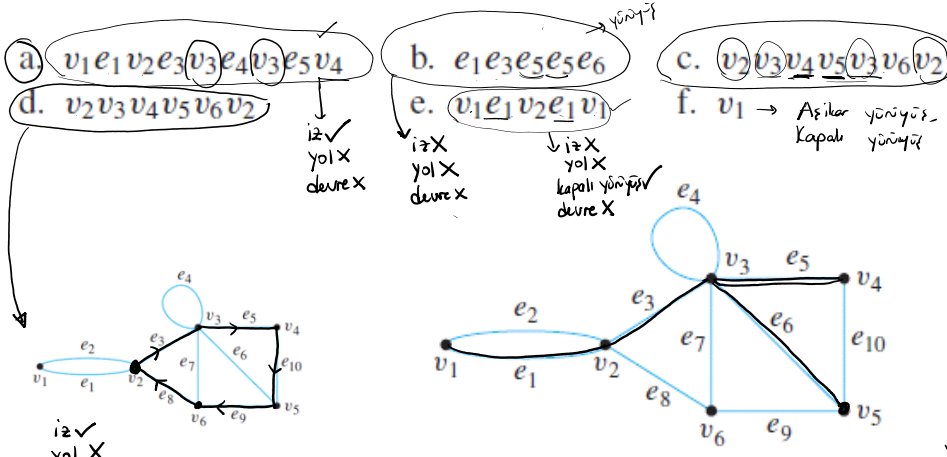 → yürüyüş
a. v₁e₁v₂e₃v₃e₄v₃e₅v₄ ✓
b. e₁e₃e₅e₅e₆
c. v₂v₃v₄v₅v₃v₆v₂
d. v₂v₃v₄v₅v₆v₂
e. v₁e₁v₂e₁v₁ ✓
f. v₁ → Aşikar yürüyüş,
Kapalı yürüyüş
iz ✓
yol X
devre X
iz X
yol X
devre X
iz X
yol X
kapalı yürüyüş ✓
devre X
e₄
v₃ e₅ v₄
e₃
e₂
e₇ e₆ e₁₀
v₁ e₁ v₂
e₈
v₆ e₉ v₅
iz ✓
yol X
e₄
v₃ e₅ v₄
e₃
e₂ e₆
e₇ e₁₀
v₁ e₁ v₂
e₈
v₅
v₆ e₉